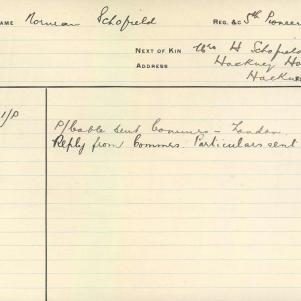 NAME Norman Schofield REG. &C 5th Pioneer
NEXT OF KIN Mrs H Schofield
ADDRESS Hackney
Hackney
1/P
P/Cable sent Commrs - London
Reply from Commrs. Particulars sent